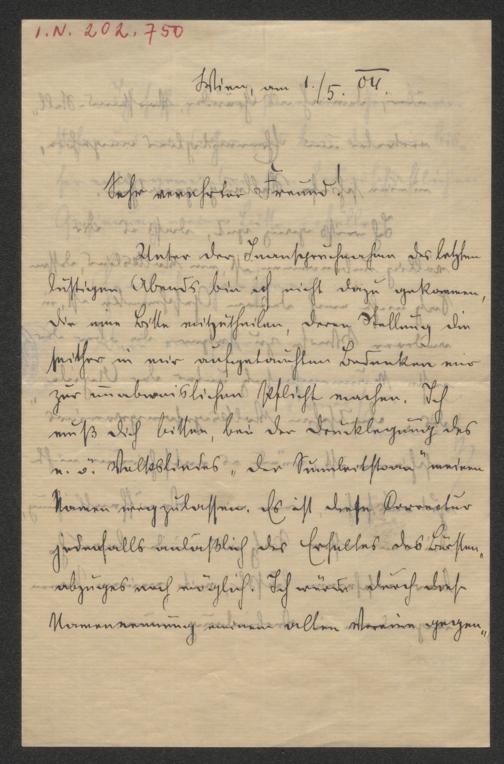 I.N. 202.750
Wien, am 1./5. 04.
Sehr verehrter Freund!
Unter der Inanspruchnahme des letzten
lustigen Abends bin ich nicht dazu gekommen,
Dir eine Bitte mitzutheilen, deren Stellung die
seither in mir aufgetauchten Bedenken mir
zur unabweislichen Pflicht machen. Ich
muß Dich bitten, bei der Drucklegung des
n. ö. Volksliedes „Der
Namen wegzulassen. Es ist diese Correctur
jedenfalls anläßlich des Erhaltes des Bürsten-
abzuges noch möglich. Ich würde durch die
Namennennung meinem alten Vereine gegen-